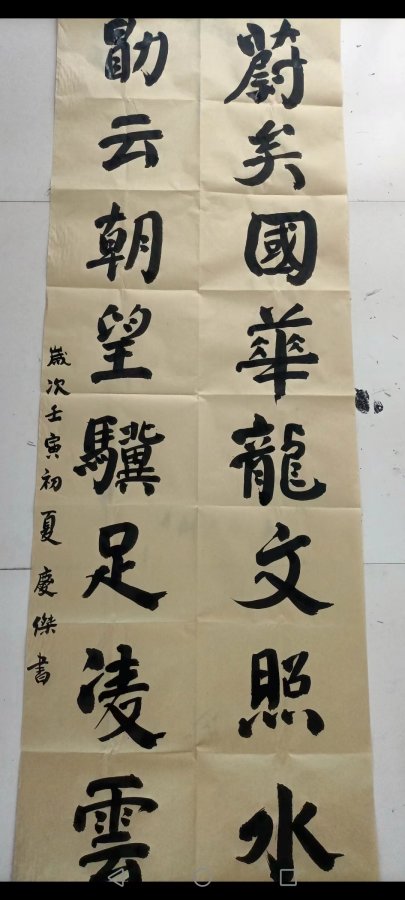 蔚矣國華龍文照水
勖云朝望驥足凌雲
歲次壬寅初夏慶傑書